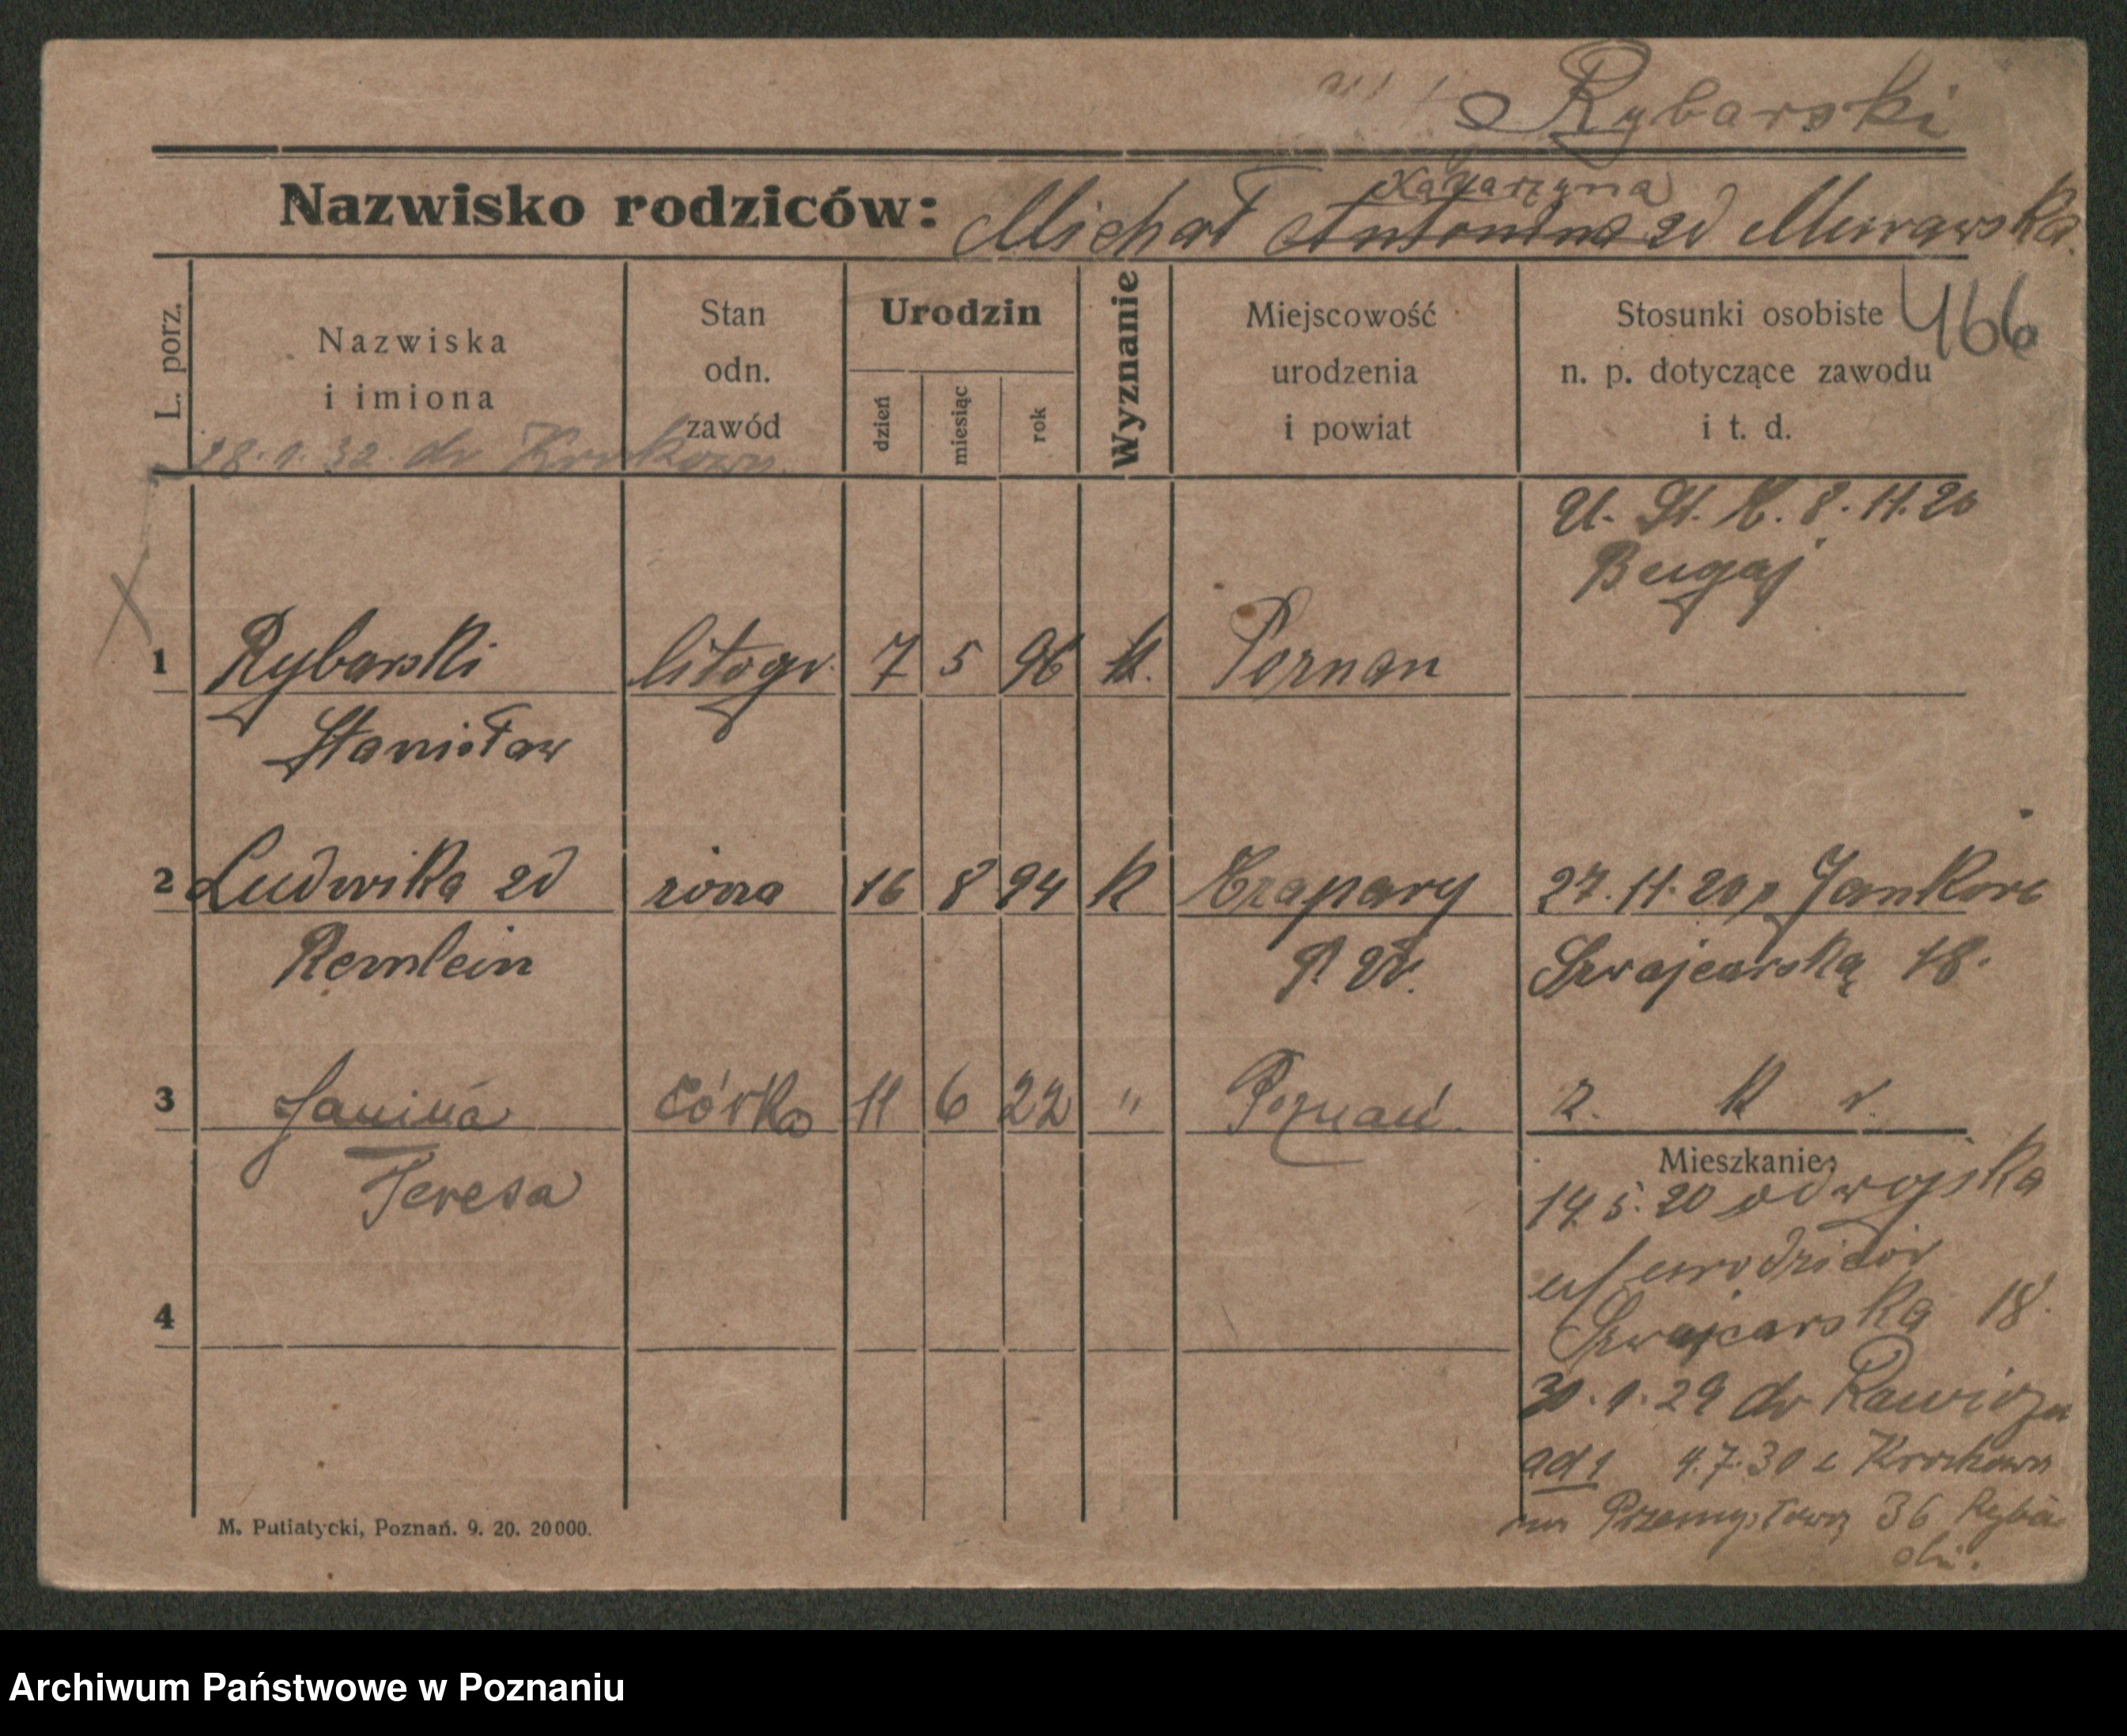 Rybarski
Nazwisko rodziców: Michał Antonina Katarzyna zd Murawska.
466
L. porz.
Nazwiska
i imiona
Stan
odn.
zawód
Urodzin
dzień
miesiąc
rok
Wyznanie
Miejscowość
urodzenia
i powiat
Stosunki osobiste
n. p. dotyczące zawodu
i t. d.
28.1.32. do Krakowa.
U. St. C. 8.11.20
Bugaj
1 Rybarski litogr. 7 5 96 k. Poznan
Stanisław
2 Ludwika zd żona 16 8 94 k Czapury 27.11.20 Jankow
Remlein P. W. Szwajcarską 18.
3 Janina córka 11 6 22 " Poznań z. k r.
Teresa
Mieszkanie:
14.5.20 od wojska
u/rodziców
Szwajcarska 18.
4
30.1.29 do Rawicza
ad 1 4.7.30 z Krakowa
na Przemysłową 36 Ryba
M. Putiatycki, Poznań. 9. 20. 20000.
Archiwum Państwowe w Poznaniu